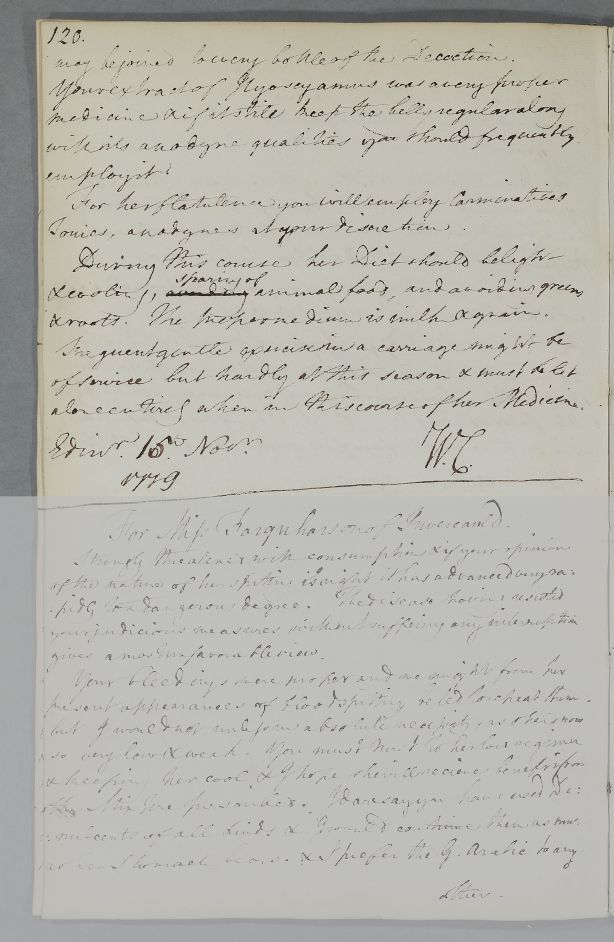 120.
may be joined to every bottle of the Decoction.
Your extract of Hyoscyamus was a very proper
medicine & if it still keep the belly regular along
with its anodyne qualities you should frequently
employ it.
For her flatulence you will employ Carminatives
Tonics, anodynes at your discretion.
During this course her Diet should be light
& cooling, sparing of animal food, and avoiding greens
& roots. The proper medium is milk & grain.
Frequent gentle exercise in a carriage might be
of service but hardly at this season & must be let
alone entirely when in this course of her Medicine.
Edinr. 15 Novr.
1779
W.C.
For Miss Farquharson of Invercauld.
Strongly threatened with consumption & if your opinion
of the nature of her spitting is right it has advanced very ra-
pidly to a dangerous degree. The disease having resisted
your judicious measures without suffering any interruption
gives a most unfavorable view.
Your bleedings were proper and we might from her
present appearances of blood spitting be led to repeat them
but I would not unless from absolute necessity as she is now
so very low & weak. You must trust to her low regimen
& keeping her cool & I hope she will recieve benefit from
the Mixture prescribed. I daresay you have used De-
mulcents of all kinds & I would continue them as much
as her Stomach bears. & I prefer the G. Arabic to any
other.